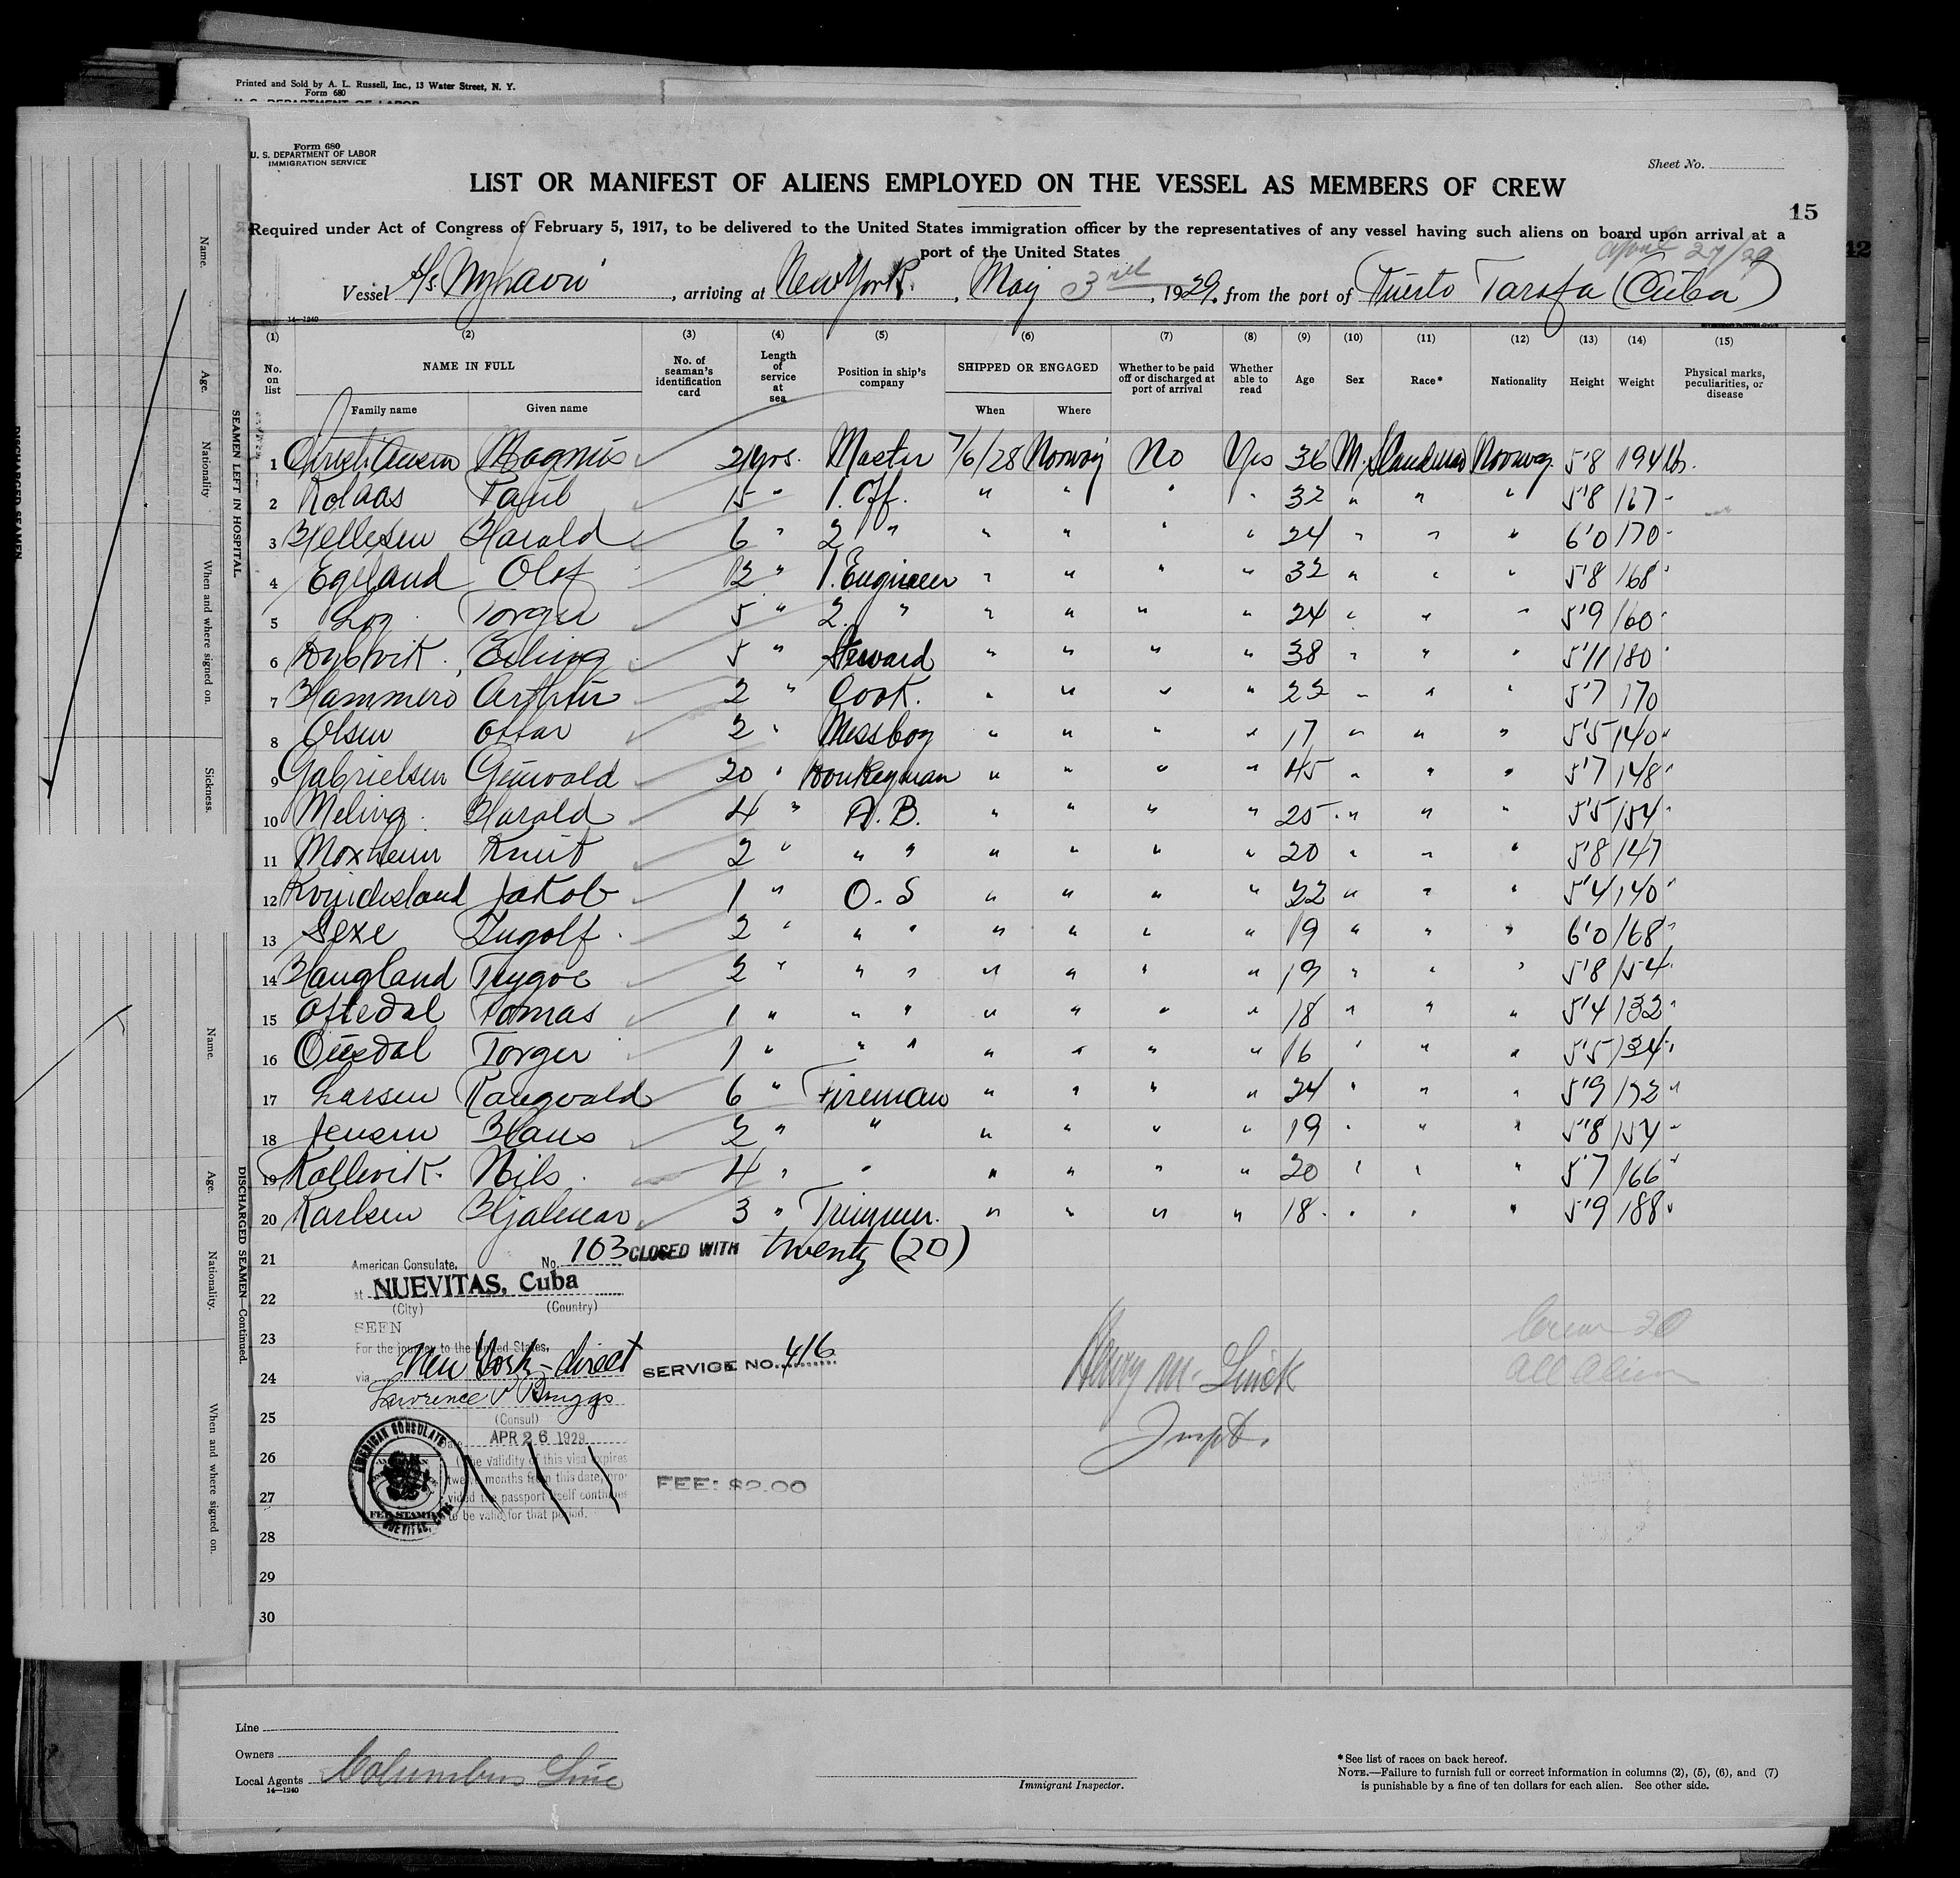 Printed and Sold by A. L. Russell, Inc., 13 Water Street, N. Y.
Form 680
U. S. DEPARTMENT OF LABOR
Form 680
U. S. DEPARTMENT OF LABOR
IMMIGRATION SERVICE
Sheet No.
LIST OR MANIFEST OF ALIENS EMPLOYED ON THE VESSEL AS MEMBERS OF CREW
15
Required under Act of Congress of February 5, 1917, to be delivered to the United States immigration officer by the representatives of any vessel having such aliens on board upon arrival at a
port of the United States
April 27/29
12
Vessel S/s Nyhavn, arriving at New York, May 3rd, 1929, from the port of Puerto Tarafa (Cuba)
14—1240
(1) (2) (3) (4) (5) (6) (7) (8) (9) (10) (11) (12) (13) (14) (15)
No. on list NAME IN FULL No. of seaman's identification card Length of service at sea Position in ship's company SHIPPED OR ENGAGED Whether to be paid off or discharged at port of arrival Whether able to read Age Sex Race* Nationality Height Weight Physical marks, peculiarities, or disease
Family name Given name When Where
1 Christiansen Magnus 21 yrs. Master 7/6/28 Norway No Yes 36 M. Scandinav Norweg. 5'8 194 lbs.
2 Kolaas Paul 15 " 1. Off. " " " " 32 " " " 5'8 167 "
3 Hellesen Harald 6 " 2 " " " " " 24 " " " 6'0 170 "
4 Egeland Olaf 12 " 1. Engineer " " " " 32 " " " 5'8 168 "
5 Log Torger 5 " 2. " " " " " 24 " " " 5'9 160 "
6 Dybvik Erling 5 " Steward " " " " 38 " " " 5'11 180 "
7 Hammero Arthur 2 " Cook. " " " " 22 " " " 5'7 170
8 Olsen Ottar 2 " Messboy " " " " 17 " " " 5'5 140 "
9 Gabrielsen Grunvald 20 " Donkeyman " " " " 45 " " " 5'7 148 "
10 Meling Harald 4 " A. B. " " " " 25 " " " 5'5 154 "
11 Moxheim Knut 2 " " " " " " " 20 " " " 5'8 147
12 Kvindesland Jakob 1 " O. S " " " " 22 " " " 5'4 140 "
13 Sexe Ingolf 2 " " " " " " " 19 " " " 6'0 168 "
14 Haugland Trygve 2 " " " " " " " 19 " " " 5'8 154 "
15 Oftedal Tomas 1 " " " " " " " 18 " " " 5'4 132 "
16 Ousdal Torger 1 " " " " " " " 16 " " " 5'5 134 "
17 Larsen Rangvald 6 " Fireman " " " " 24 " " " 5'9 172 "
18 Jensen Hans 2 " " " " " " 19 " " " 5'8 154 "
19 Kallevik Nils 4 " " " " " " 20 " " " 5'7 166 "
20 Karlsen Hjalmar 3 " Trimmer. " " " " 18 " " " 5'9 188 "
21
22
23
24
25
26
27
28
29
30
American Consulate, No. 163 CLOSED WITH twenty (20)
at NUEVITAS, Cuba
(City) (Country)
SEEN
For the journey to the United States,
via New York – direct
SERVICE NO. 416
Lawrence P Briggs
(Consul)
Date APR 26 1929
(The validity of this visa expires
twelve months from this date, pro-
vided the passport itself continues
to be valid for that period.
AMERICAN CONSULATE
FEE STAMP
NUEVITAS, CUBA
FEE: $2.00
Henry M. Linck
Inspt.
Crew 20
All Alien
Line
Owners
Local Agents Columbus Line
14—1240
Immigrant Inspector.
*See list of races on back hereof.
NOTE.—Failure to furnish full or correct information in columns (2), (5), (6), and (7)
is punishable by a fine of ten dollars for each alien. See other side.
Name.
Age.
Nationality
When and where signed on.
Sickness.
SEAMEN LEFT IN HOSPITAL
DISCHARGED SEAMEN
Name.
Age.
Nationality.
When and where signed on.
DISCHARGED SEAMEN—Continued.